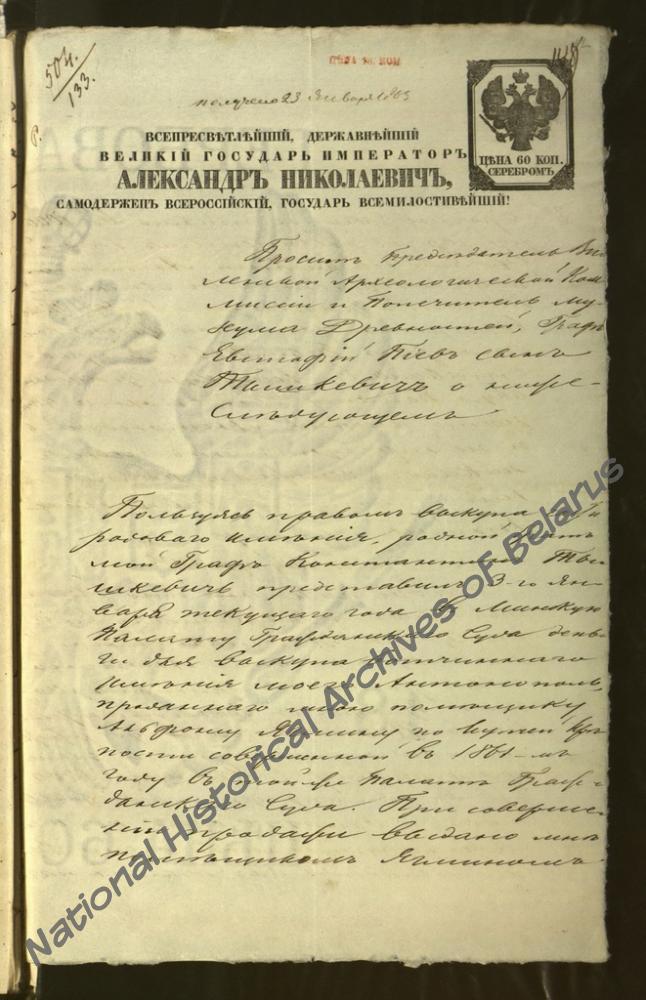 504.
133.
ЦѢНА 60 КОП
получено 23 Января 1863
ВСЕПРЕСВѢТЛѢЙШІЙ, ДЕРЖАВНѢЙШІЙ
ВЕЛИКІЙ ГОСУДАРЬ ИМПЕРАТОРЪ
АЛЕКСАНДРЪ НИКОЛАЕВИЧЪ,
САМОДЕРЖЕЦЪ ВСЕРОССІЙСКІЙ, ГОСУДАРЬ ВСЕМИЛОСТИВѢЙШІЙ!
ЦѢНА 60 КОП.
СЕРЕБРОМЪ
Проситъ Предсѣдатель Ви-
ленской Археологической Ком-
миссіи и Попечитель Му-
зеума Древностей, Графъ
Евстафій Піевъ сынъ
Тышкевичъ о ниже-
слѣдующемъ
Пользуясь правомъ выкупа
родоваго имѣнія, родной братъ
мой Графъ Константинъ Ты-
шкевичъ представилъ 3-го Ян-
варя текущаго года въ Минскую
Палату Гражданскаго Суда день-
ги для выкупа вотчиннаго
имѣнія моего Антонополь,
проданнаго мною помѣщику
Ячмину по купчей крѣ-
пости совершенной въ 1861-мъ
году въ той же Палатѣ Граж-
данскаго Суда. При соверше-
ніи продажи выдано мнѣ
помѣщикомъ Ячминомъ
National Historical Archives of Belarus